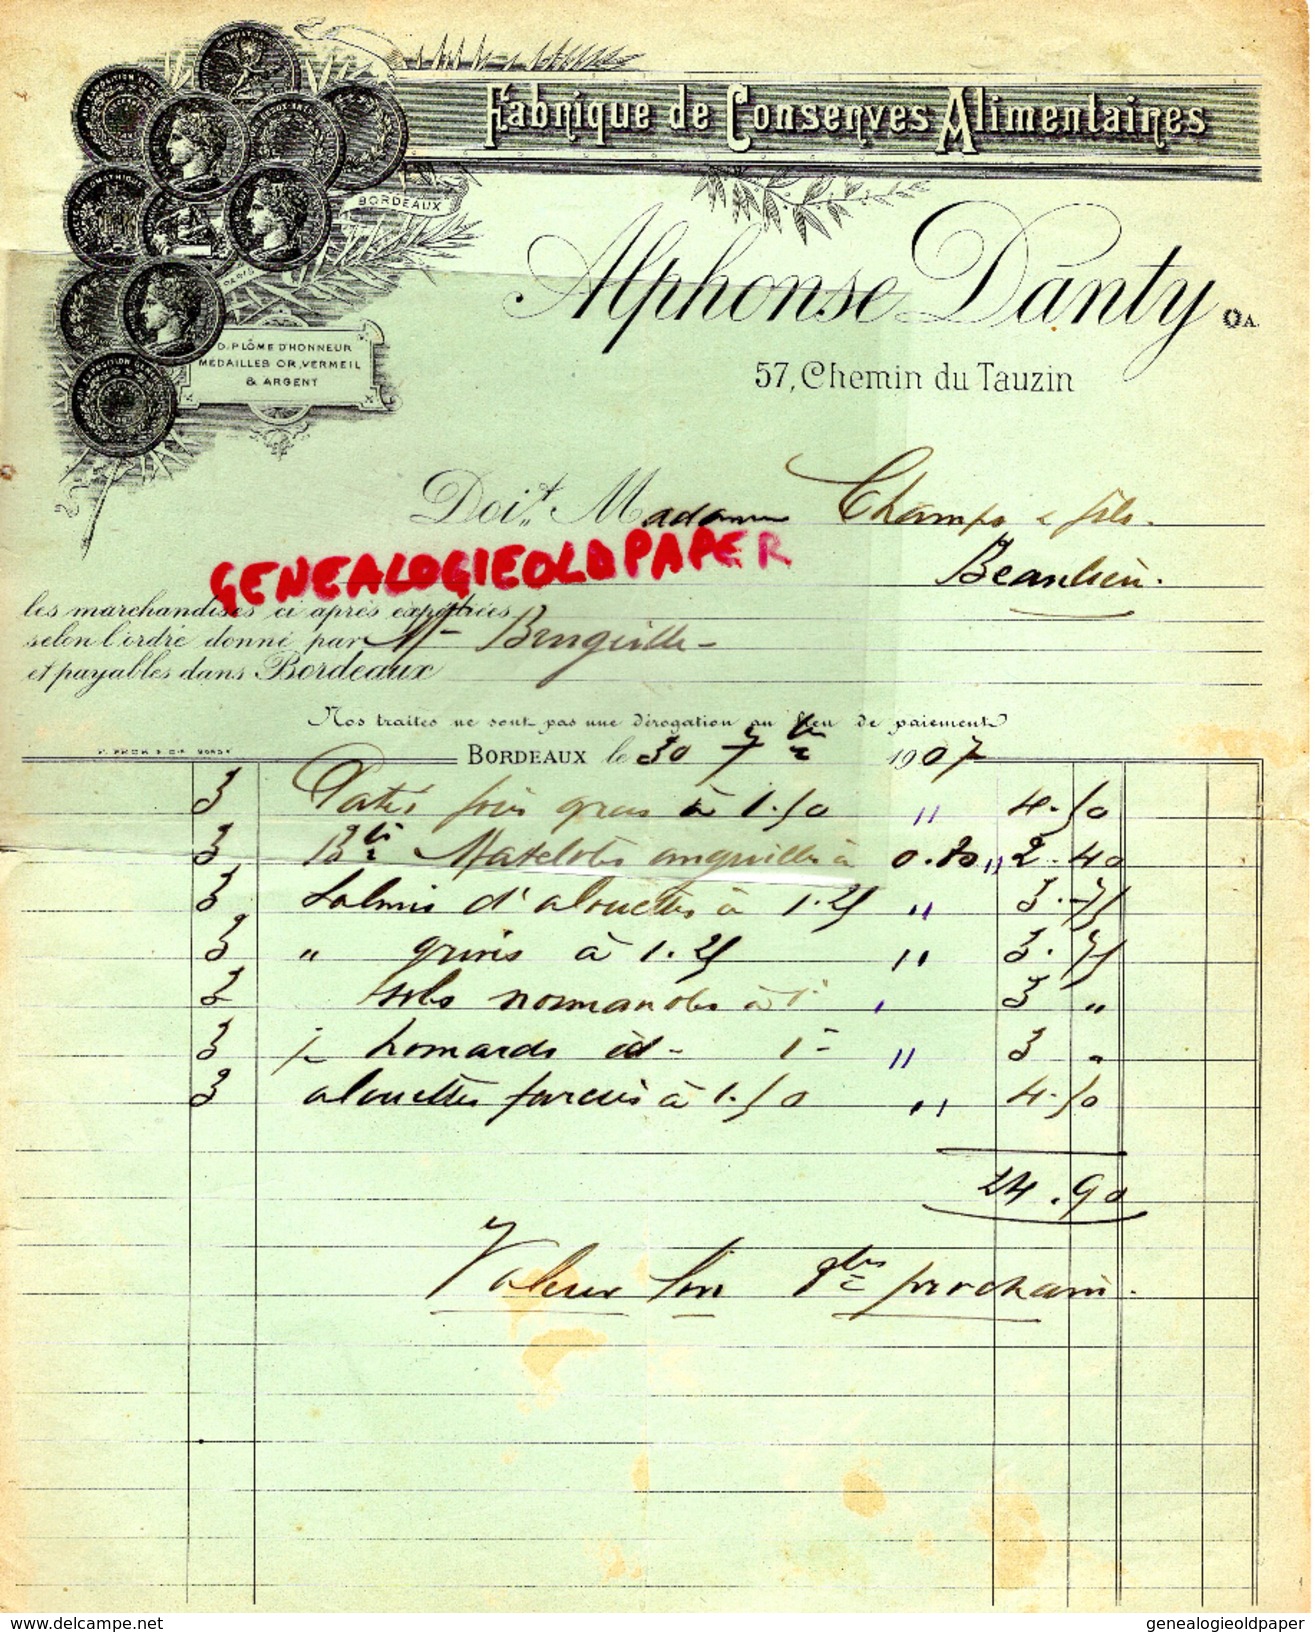 Fabrique de Conserves Alimentaires
BORDEAUX
PARIS
Alphonse Danty OA.
DIPLÔME D'HONNEUR
MÉDAILLES OR, VERMEIL
& ARGENT
57, Chemin du Tauzin
Doit M adame Champs & fils.
GENEALOGIEOLDPAPER
Beaulieu.
les marchandises ci après expédiées
selon l'ordre donné par M
et payables dans Bordeaux
Nos traites ne sont pas une dérogation au lieu de paiement
BORDEAUX le 30 7bre 1907
3 Patés foies gras à 1.50 " 4.50
3 Btes Matelotes anguilles à 0.80 " 2.40
3 Salmis d'alouettes à 1.25 " 3.75
3 " grives à 1.25 " 3.75
3 soles normandes à 1- " 3 "
3 homards à 1- " 3 "
3 alouettes farcies à 1.50 " 4.50
24.90
Valeur fin 8bre prochain.
www.delcampe.net
genealogieoldpaper